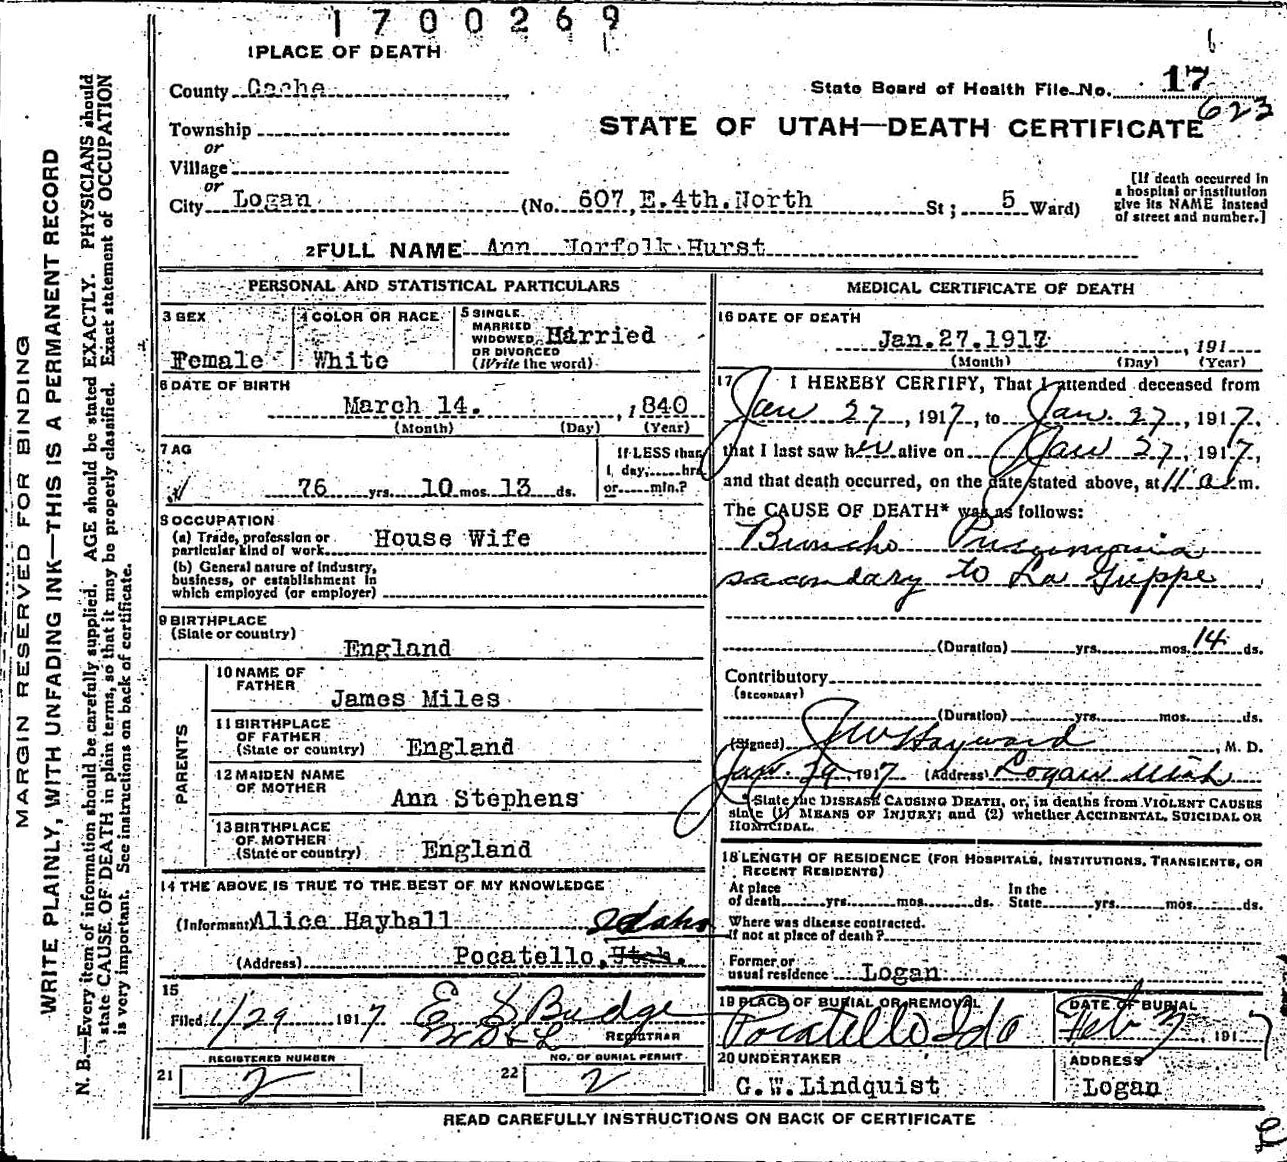 1700269
1 PLACE OF DEATH
County Cache
State Board of Health File No. 17
623
Township
STATE OF UTAH—DEATH CERTIFICATE
or
Village
or
City Logan (No. 607, E.4th.North St; 5 Ward)
[If death occurred in
a hospital or institution
give its NAME instead
of street and number.]
2 FULL NAME Ann Norfolk Hurst
PERSONAL AND STATISTICAL PARTICULARS
3 SEX
Female
4 COLOR OR RACE
White
5 SINGLE
MARRIED
WIDOWED
OR DIVORCED
(Write the word)
Married
6 DATE OF BIRTH
March 14. , 1840
(Month) (Day) (Year)
7 AG
76 yrs. 10 mos. 13 ds.
If LESS than
1 day, hrs
or min.?
8 OCCUPATION
(a) Trade, profession or
particular kind of work House Wife
(b) General nature of industry,
business, or establishment in
which employed (or employer)
9 BIRTHPLACE
(State or country)
England
PARENTS
10 NAME OF
FATHER
James Miles
11 BIRTHPLACE
OF FATHER
(State or country) England
12 MAIDEN NAME
OF MOTHER
Ann Stephens
13 BIRTHPLACE
OF MOTHER
(State or country) England
14 THE ABOVE IS TRUE TO THE BEST OF MY KNOWLEDGE
(Informant) Alice Hayball
Idaho
(Address) Pocatello, Utah.
15
Filed 1/29 1917 E S Budge
REGISTRAR
REGISTERED NUMBER
21 2
NO. OF BURIAL PERMIT
22 2
MEDICAL CERTIFICATE OF DEATH
16 DATE OF DEATH
Jan.27.1917 , 191
(Month) (Day) (Year)
17 I HEREBY CERTIFY, That I attended deceased from
Jan 27 , 1917, to Jan. 27 , 1917,
that I last saw her alive on Jan 27 , 1917,
and that death occurred, on the date stated above, at 11 a.m.
The CAUSE OF DEATH* was as follows:
Broncho Pneumonia
secondary to La Grippe
(Duration) yrs. mos. 14 ds.
Contributory
(SECONDARY)
(Duration) yrs. mos. ds.
(Signed) J W Hayward , M. D.
Jan. 29, 1917 (Address) Logan Utah
* State the DISEASE CAUSING DEATH, or, in deaths from VIOLENT CAUSES
state (1) MEANS OF INJURY; and (2) whether ACCIDENTAL, SUICIDAL OR
HOMICIDAL.
18 LENGTH OF RESIDENCE (FOR HOSPITALS, INSTITUTIONS, TRANSIENTS, OR
RECENT RESIDENTS)
At place
of death yrs. mos. ds.
In the
State yrs. mos. ds.
Where was disease contracted.
If not at place of death?
Former or
usual residence Logan
19 PLACE OF BURIAL OR REMOVAL
Pocatello Ido
DATE OF BURIAL
Feb 2, 1917
20 UNDERTAKER
G.W.Lindquist
ADDRESS
Logan
READ CAREFULLY INSTRUCTIONS ON BACK OF CERTIFICATE
MARGIN RESERVED FOR BINDING
WRITE PLAINLY, WITH UNFADING INK—THIS IS A PERMANENT RECORD
N. B.—Every item of information should be carefully supplied. AGE should be stated EXACTLY. PHYSICIANS should
state CAUSE OF DEATH in plain terms, so that it may be properly classified. Exact statement of OCCUPATION
is very important. See instructions on back of certificate.